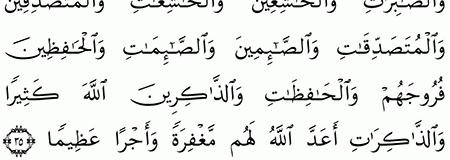 وَٱلصَّـٰبِرَٰتِ وَٱلْخَـٰشِعِينَ وَٱلْخَـٰشِعَـٰتِ وَٱلْمُتَصَدِّقِينَ
وَٱلْمُتَصَدِّقَـٰتِ وَٱلصَّـٰٓئِمِينَ وَٱلصَّـٰٓئِمَـٰتِ وَٱلْحَـٰفِظِينَ
فُرُوجَهُمْ وَٱلْحَـٰفِظَـٰتِ وَٱلذَّٰكِرِينَ ٱللَّهَ كَثِيرًا
وَٱلذَّٰكِرَٰتِ أَعَدَّ ٱللَّهُ لَهُم مَّغْفِرَةً وَأَجْرًا عَظِيمًا ٣٥